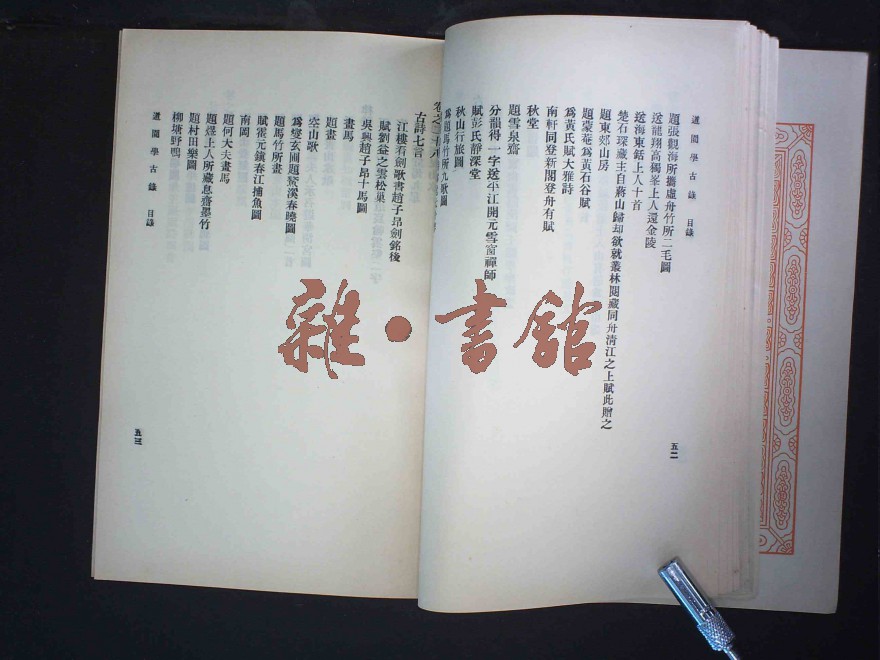 道園學古錄 目錄
題張觀海所攜虛舟竹所二毛圖
送龍翔高獨峯上人還金陵
送海東銛上人十首
楚石琛藏主自蔣山歸却欲就叢林閱藏同舟清江之上賦此贈之
題東郊山房
題蒙菴爲黃石谷賦
爲黃氏賦大雅詩
南軒同登新閣登舟有賦
秋堂
題雪泉齋
分韻得一字送平江開元雪窗禪師
賦彭氏靜深堂
秋山行旅圖
爲題馬竹所九歌圖
五二
卷之二十八
古詩七言
江樓有劍歌書趙子昂劍銘後
賦劉益之雲松巢
吳興趙子昂十馬圖
畫馬
題畫
空山歌
爲燮玄圃題鰲溪春曉圖
題馬竹所畫
賦霍元鎮春江捕魚圖
南岡
題何大夫畫馬
題澄上人所藏息齋墨竹
題村田樂圖
柳塘野鴨
道園學古錄 目錄
五三
雜·書館